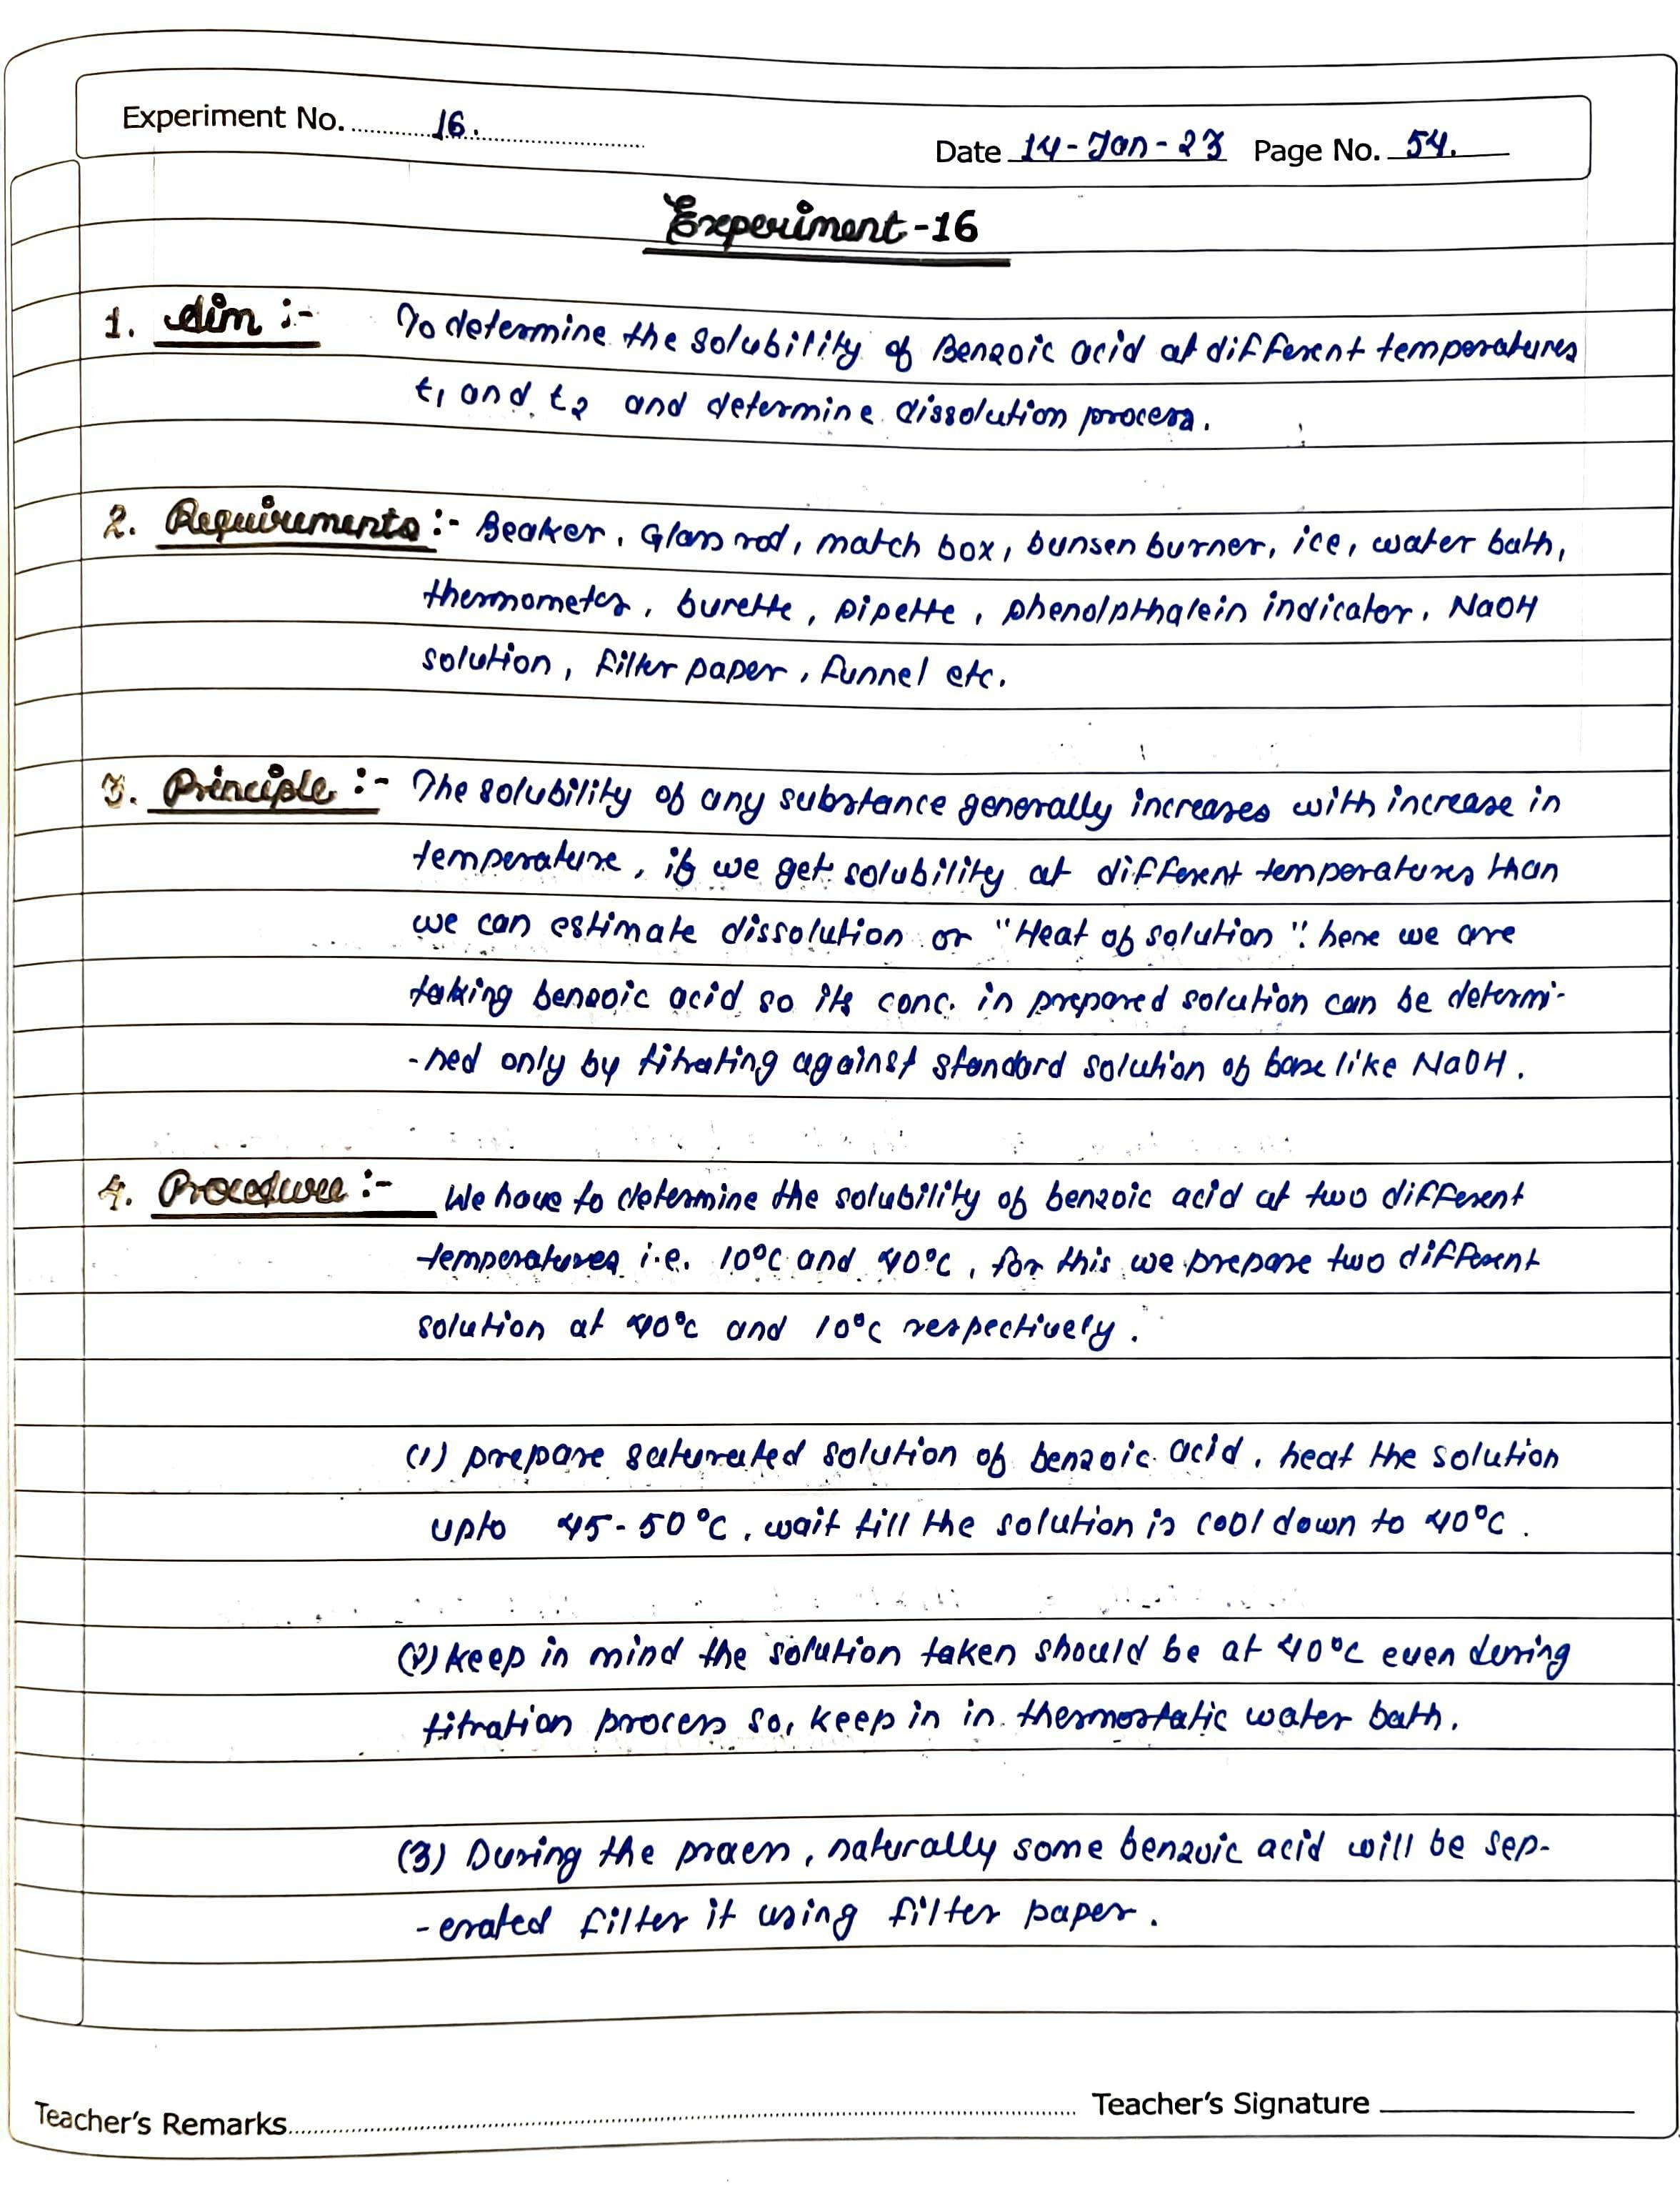 Experiment No. 16.
Date 14-Jan-23 Page No. 54.
Experiment-16
1. Aim :- To determine the solubility of Benzoic acid at different temperatures
t1 and t2 and determine dissolution process.
2. Requirements :- Beaker, Glass rod, match box, bunsen burner, ice, water bath,
thermometer, burette, pipette, phenolpthalein indicator, NaOH
solution, filter paper, funnel etc.
3. Principle :- The solubility of any substance generally increases with increase in
temperature, if we get solubility at different temperatures than
we can estimate dissolution or "Heat of solution". here we are
taking benzoic acid so its conc. in prepared solution can be determi-
-ned only by titrating against standard solution of base like NaOH.
4. Procedure :- We have to determine the solubility of benzoic acid at two different
temperatures i.e. 10°C and 40°C, for this we prepare two different
solution at 40°C and 10°C respectively.
(1) prepare saturated solution of benzoic acid, heat the solution
upto 45-50°C, wait till the solution is cool down to 40°C.
(2) keep in mind the solution taken should be at 40°C even during
titration process so, keep in in thermostatic water bath.
(3) During the process, naturally some benzoic acid will be sep-
-erated filter it using filter paper.
Teacher's Remarks
Teacher's Signature